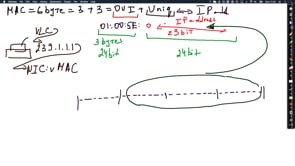 MAC = 6 byte = 3 + 3 = OUI + Uniq ↔ IP add
01:00:5E: 0 IP address
23 bit
VLC
239.1.1.1
3 bytes
24 bit 24 bit
NIC: vMAC